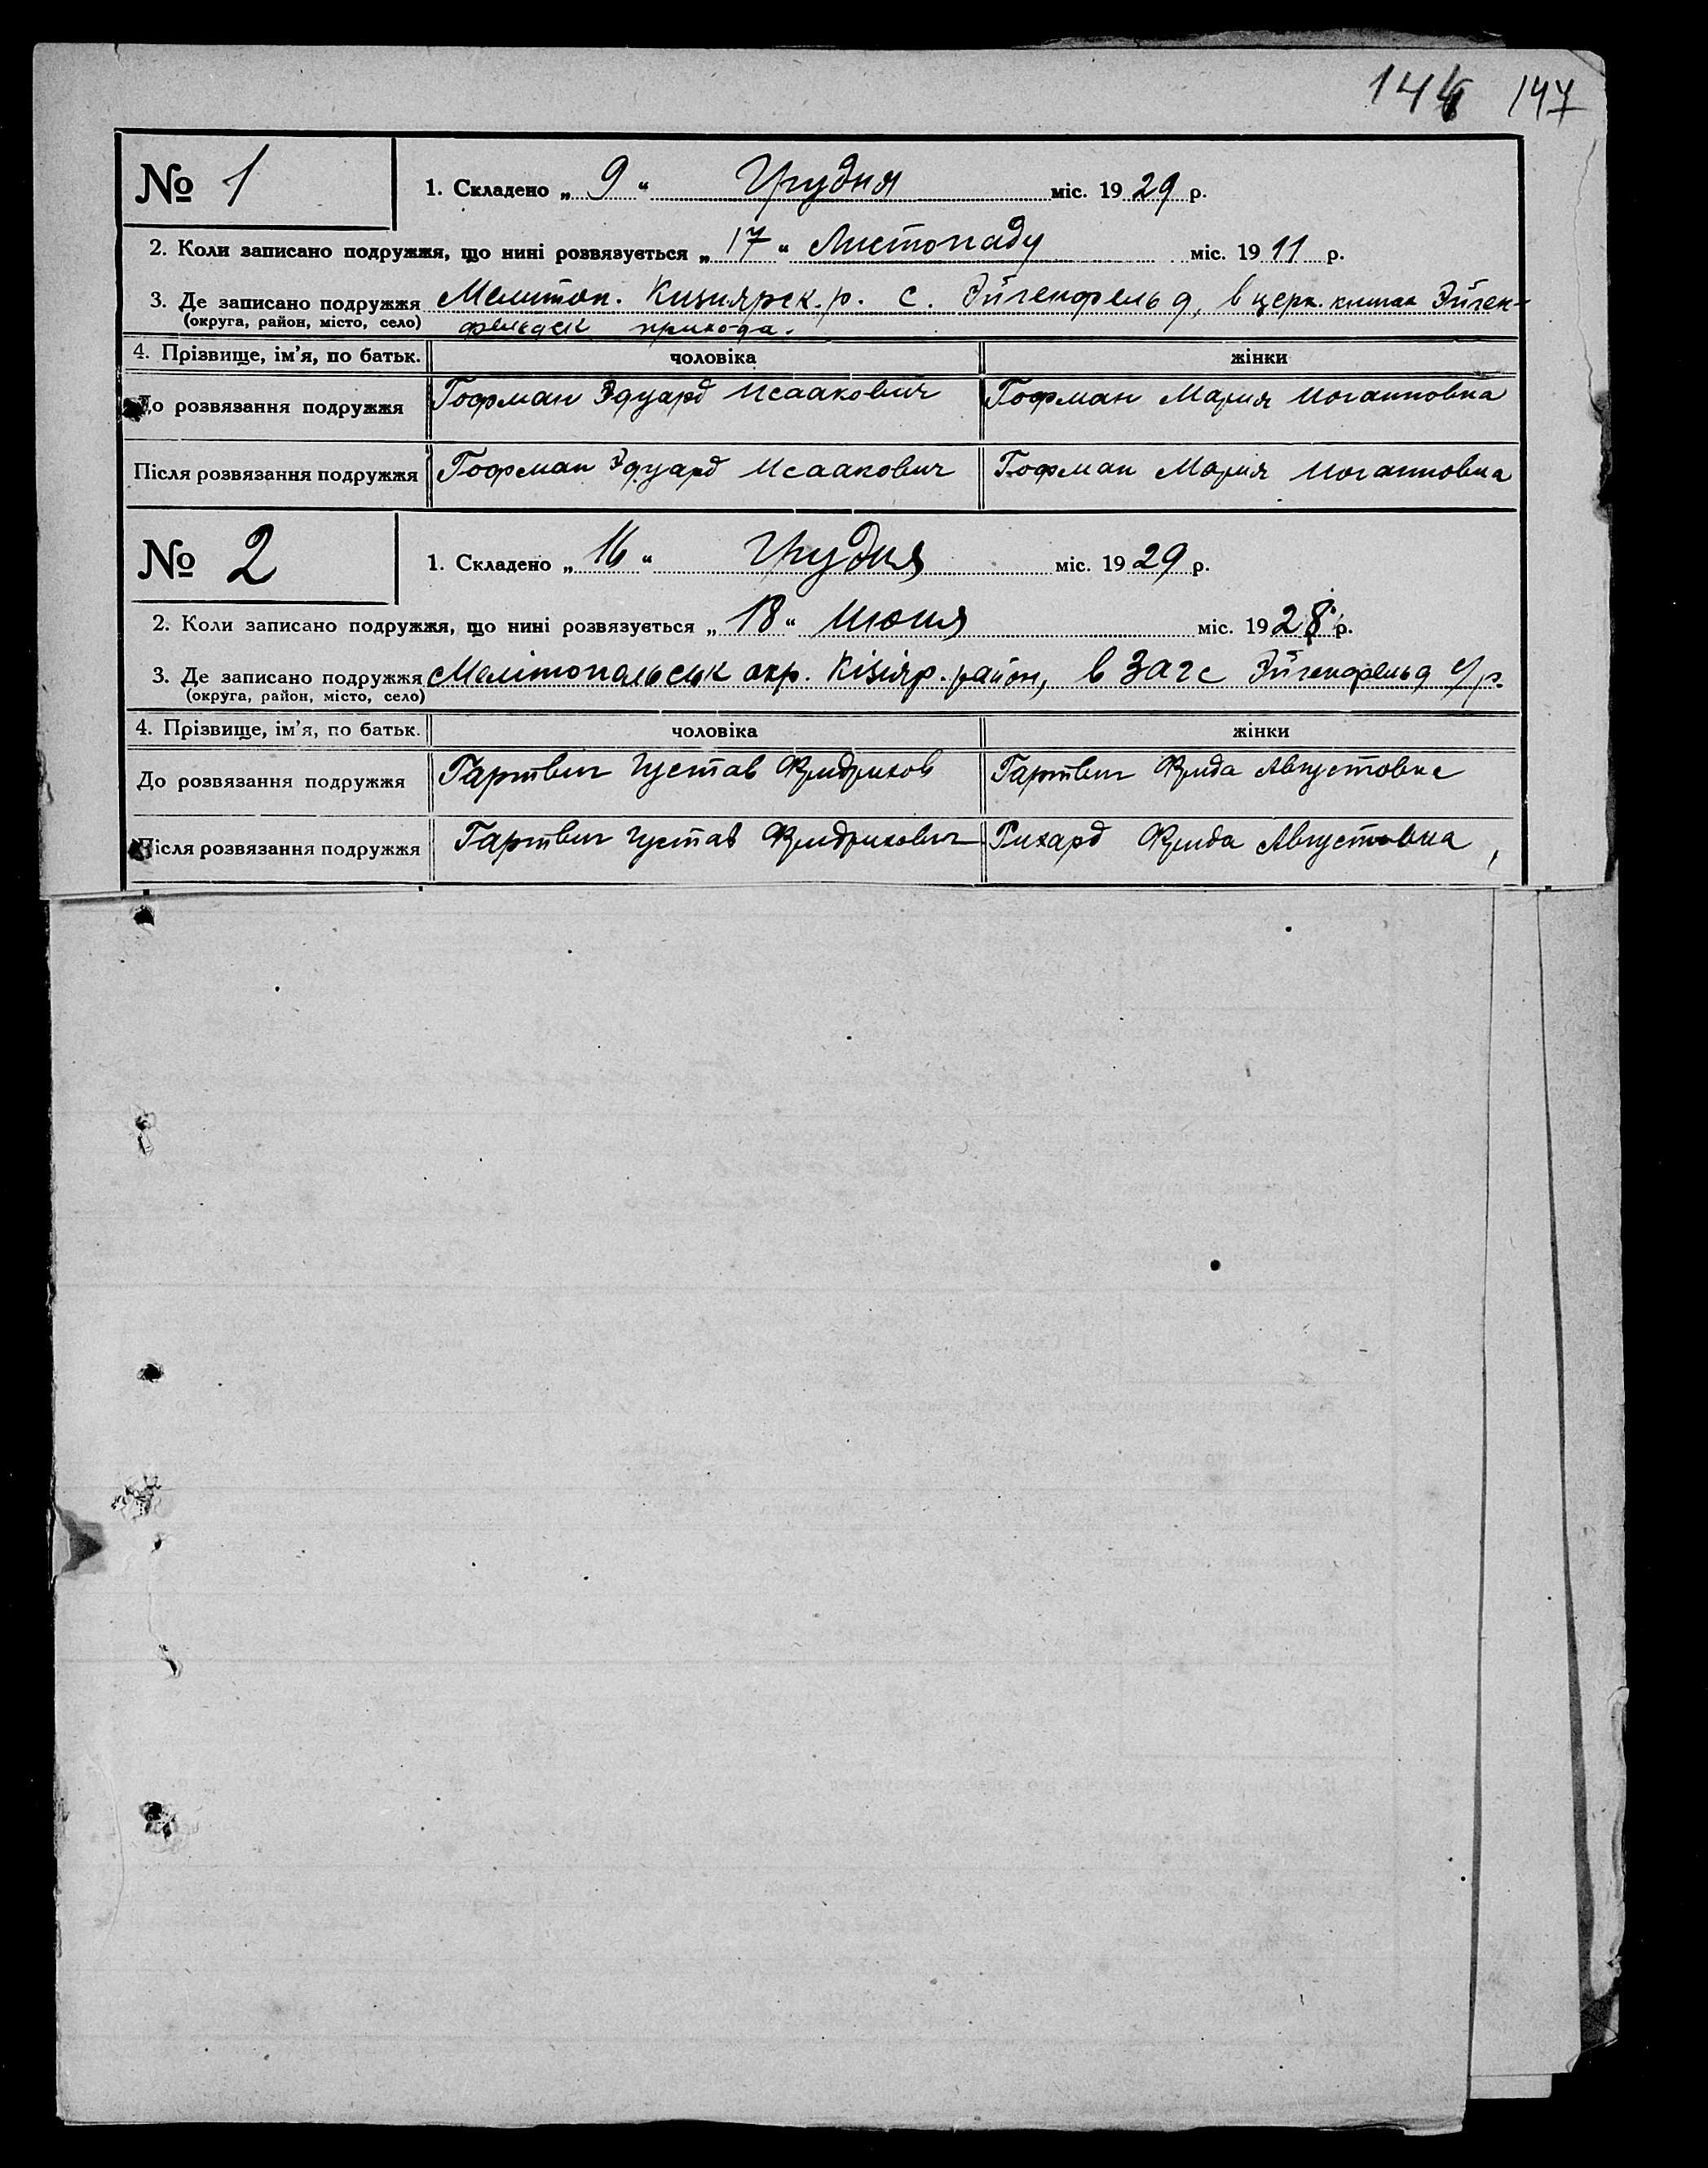 144 147
№ 1
1. Складено „ 9 “ Грудня міс. 19 29 р.
2. Коли записано подружжя, що нині розвязується „ 17 “ Листопаду міс. 19 11 р.
3. Де записано подружжя Мелитоп. Кизиярск. р. с. Эйгенфельд, в церк. книгах Эйген-
(округа, район, місто, село) фельдск прихода.
4. Прізвище, ім’я, по батьк. чоловіка жінки
До розвязання подружжя Гофман Эдуард Исаакович Гофман Мария Иоганновна
Після розвязання подружжя Гофман Эдуард Исаакович Гофман Мария Иоганновна
№ 2
1. Складено „ 16 “ Грудня міс. 19 29 р.
2. Коли записано подружжя, що нині розвязується „ 18 “ Июня міс. 19 28 р.
3. Де записано подружжя Мелітопольськ окр. Кізіяр. район, в Загс Эйгенфельд с/р.
(округа, район, місто, село)
4. Прізвище, ім’я, по батьк. чоловіка жінки
До розвязання подружжя Гартвиг Густав Фридрихов Гартвиг Фрида Августовна
Після розвязання подружжя Гартвиг Густав Фридрихович Рихард Фрида Августовна